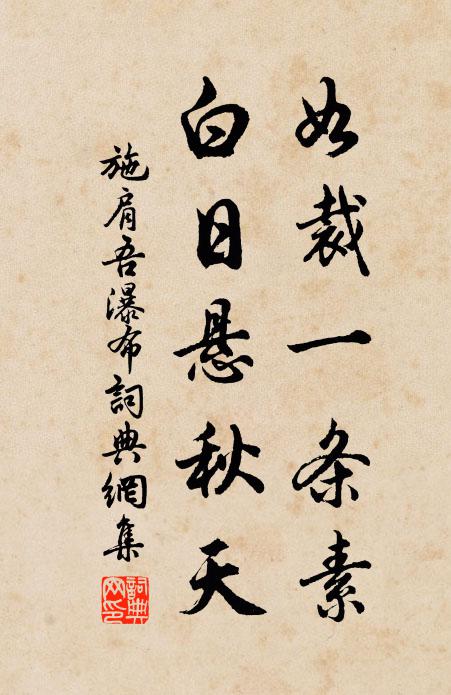 如裁一条素
白日悬秋天
施肩吾瀑布詞典網集
詞典網印